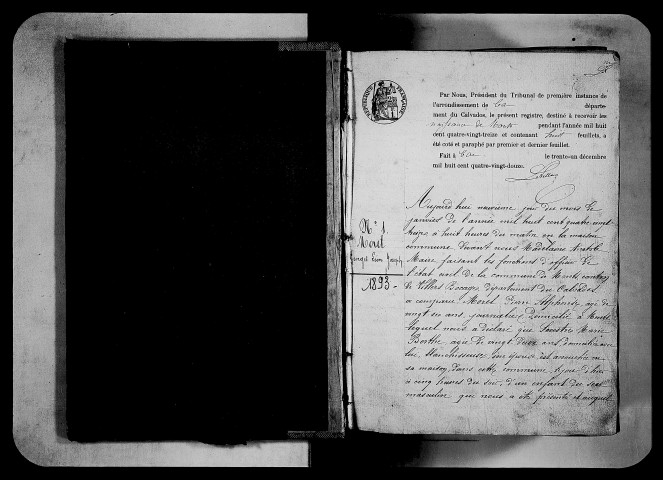 RÉPUBLIQUE FRANÇAISE
Par Nous, Président du Tribunal de première instance de
l'arrondissement de départe-
ment du Calvados, le présent registre, destiné à recevoir les
naissances de Monts pendant l'année mil huit
cent quatre-vingt-treize et contenant huit feuillets, a
été coté et paraphé par premier et dernier feuillet.
Fait à le trente-un décembre
mil huit cent quatre-vingt-douze.
N° 1.
Morel
Georges Léon Joseph
1893.
Aujourd'hui neuvième jour du mois de
janvier de l'année mil huit cent quatre vingt
treize à huit heures du matin en la maison
commune devant nous
Maire faisant les fonctions d'officier de
l'état civil de la commune de Monts canton
de Villers Bocage, Département du Calvados
a comparu Morel Alphonse, agé de
vingt six ans, journalier, domicilié à Monts
lequel nous a déclaré que Marie
Berthe agée de vingt deux ans, domiciliée avec
lui, blanchisseuse, son épouse est accouchée en
sa maison, dans cette commune, le jour d'hier
à cinq heures du soir, d'un enfant du sexe
masculin qui nous a été présenté et auquel